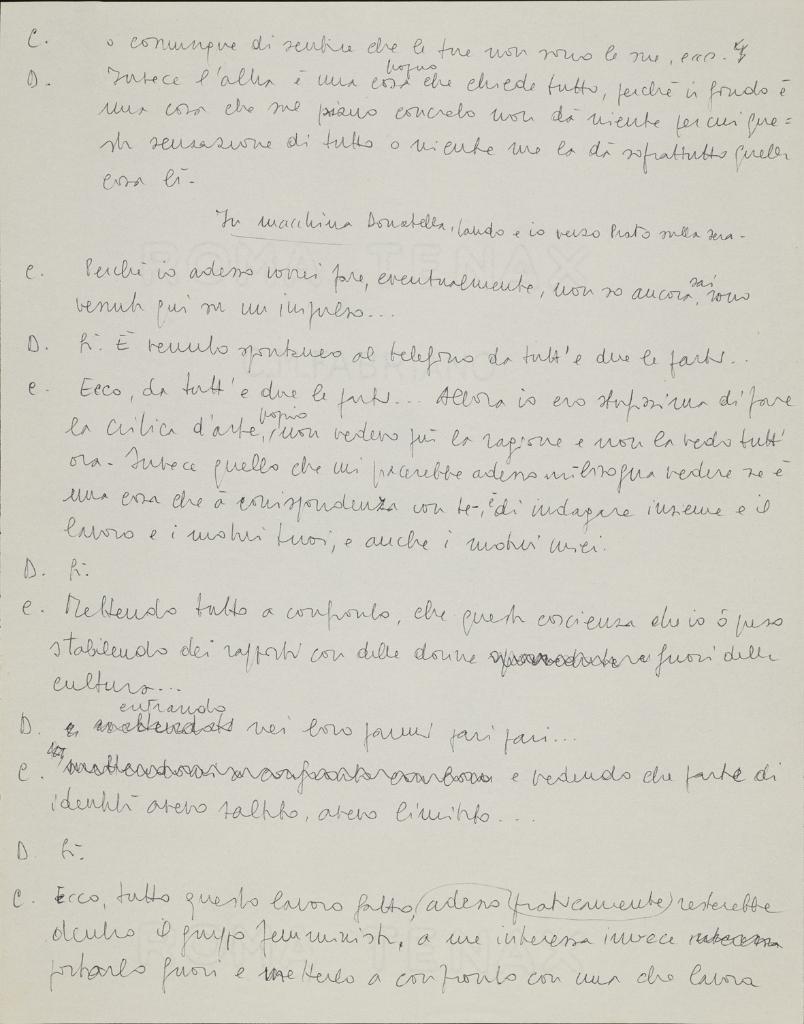 C. o comunque di sentire che le tue non sono le sue, ecc.
D. Invece l'altra è una cosa proprio che chiede tutto, perché in fondo è
una cosa che sul piano concreto non dà niente per cui que=
sta sensazione di tutto o niente me la dà soprattutto quella
cosa lì-
In macchina Donatella, e io verso Prato sulla sera-
C. Perché io adesso vorrei fare, eventualmente, non so ancora, sai, sono
venuta qui su un impulso...
D. Sì. È venuto spontaneo al telefono da tutt'e due le parti...
C. Ecco, da tutt'e due le parti... Allora io ero stufissima di fare
la critica d'arte, proprio, non vedevo più la ragione e non la vedo tutt'
ora- Invece quello che mi piacerebbe adesso bisogna vedere se è
una cosa che à corrispondenza con te-, è di indagare insieme e il
lavoro e i motivi tuoi, e anche i motivi miei.
D. Sì.
C. Mettendo tutto a confronto, che questa coscienza che io ò preso
stabilendo dei rapporti con delle donne fuori della
cultura...
D. entrando nei loro panni pari pari...
C. e vedendo che parte di
identità avevo saltato, avevo limitato...
D Sì.
C. Ecco, tutto questo lavoro fatto, adesso (praticamente) resterebbe
dentro il gruppo femminista, a me interessa invece
portarlo fuori e metterlo a confronto con una che lavora
ROMA TENAX
C.M. FABRIANO
ROMA TENAX